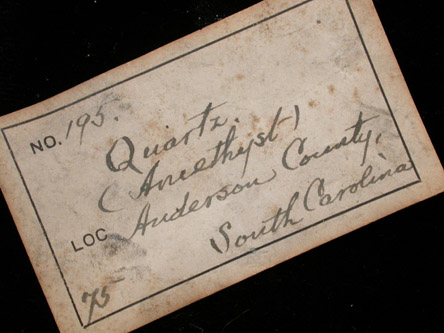 NO. 195.
Quartz.
(Amethyst)
LOC Anderson County,
South Carolina
75